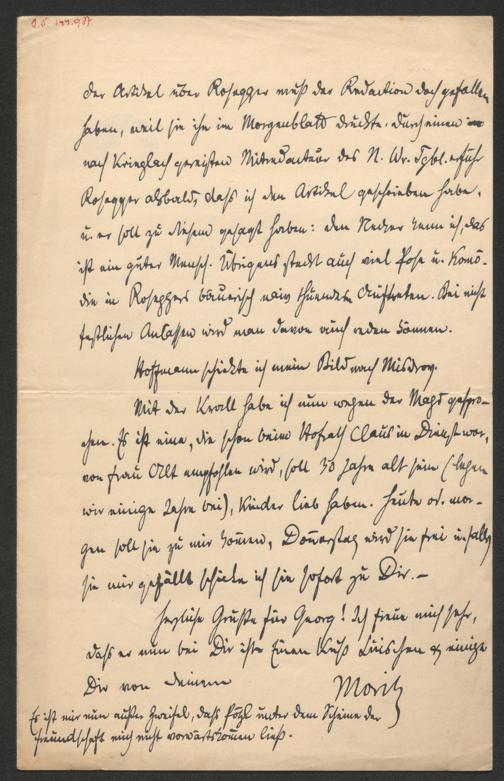 I.N. 144.987
der Artikel über Rosegger muß der Redaction doch gefallen
haben, weil sie ihn im Morgenblatt druckte. Durch einen
nach Krieglach gereisten Mitredacteur des N. Wr. Tgbl. erfuhr
Rosegger alsbald, daß ich den Artikel geschrieben habe,
u. er soll zu diesem gesagt haben: den Necker kenn ich, das
ist ein guter Mensch. Übrigens steckt auch viel Pose u. Komö-
die in Roseggers bäuerisch naiv thuendem Auftreten. Bei nicht
festlichen Anlässen wird man davon auch reden können.
Hoffmann schickte ich mein Bild nach Misdroy.
Mit der Kroll habe ich nun wegen der Magd gespro-
chen. Es ist eine, die schon beim Hofrath Claus in Dienst war,
von Frau Alt empfohlen wird, soll 30 Jahre alt sein (legen
wir einige Jahre bei), Kinder lieb haben. Heute od. mor-
gen soll sie zu mir kommen, Donnerstag wird sie frei u. falls
sie mir gefällt schicke ich sie sofort zu Dir. –
Herzliche Grüße für Georg! Ich freue mich sehr,
daß er nun bei Dir ist. Einen Kuß Luischen & einige
Dir von Deinem
Moritz
Es ist mir nun außer Zweifel, daß unter dem Scheine der
Freundschaft mich nicht vorwärtskommen ließ.